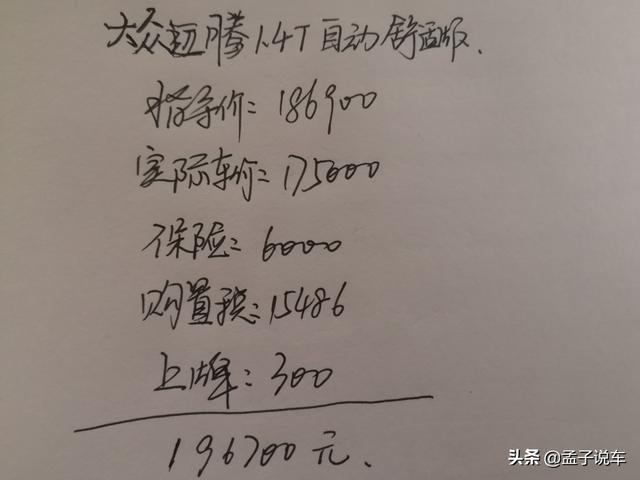 大众迈腾1.4T自动舒适版.
指导价=186900
实际车价=175000
保险=6000
购置税:15486
上牌:300
196700元.
头条 @孟子说车